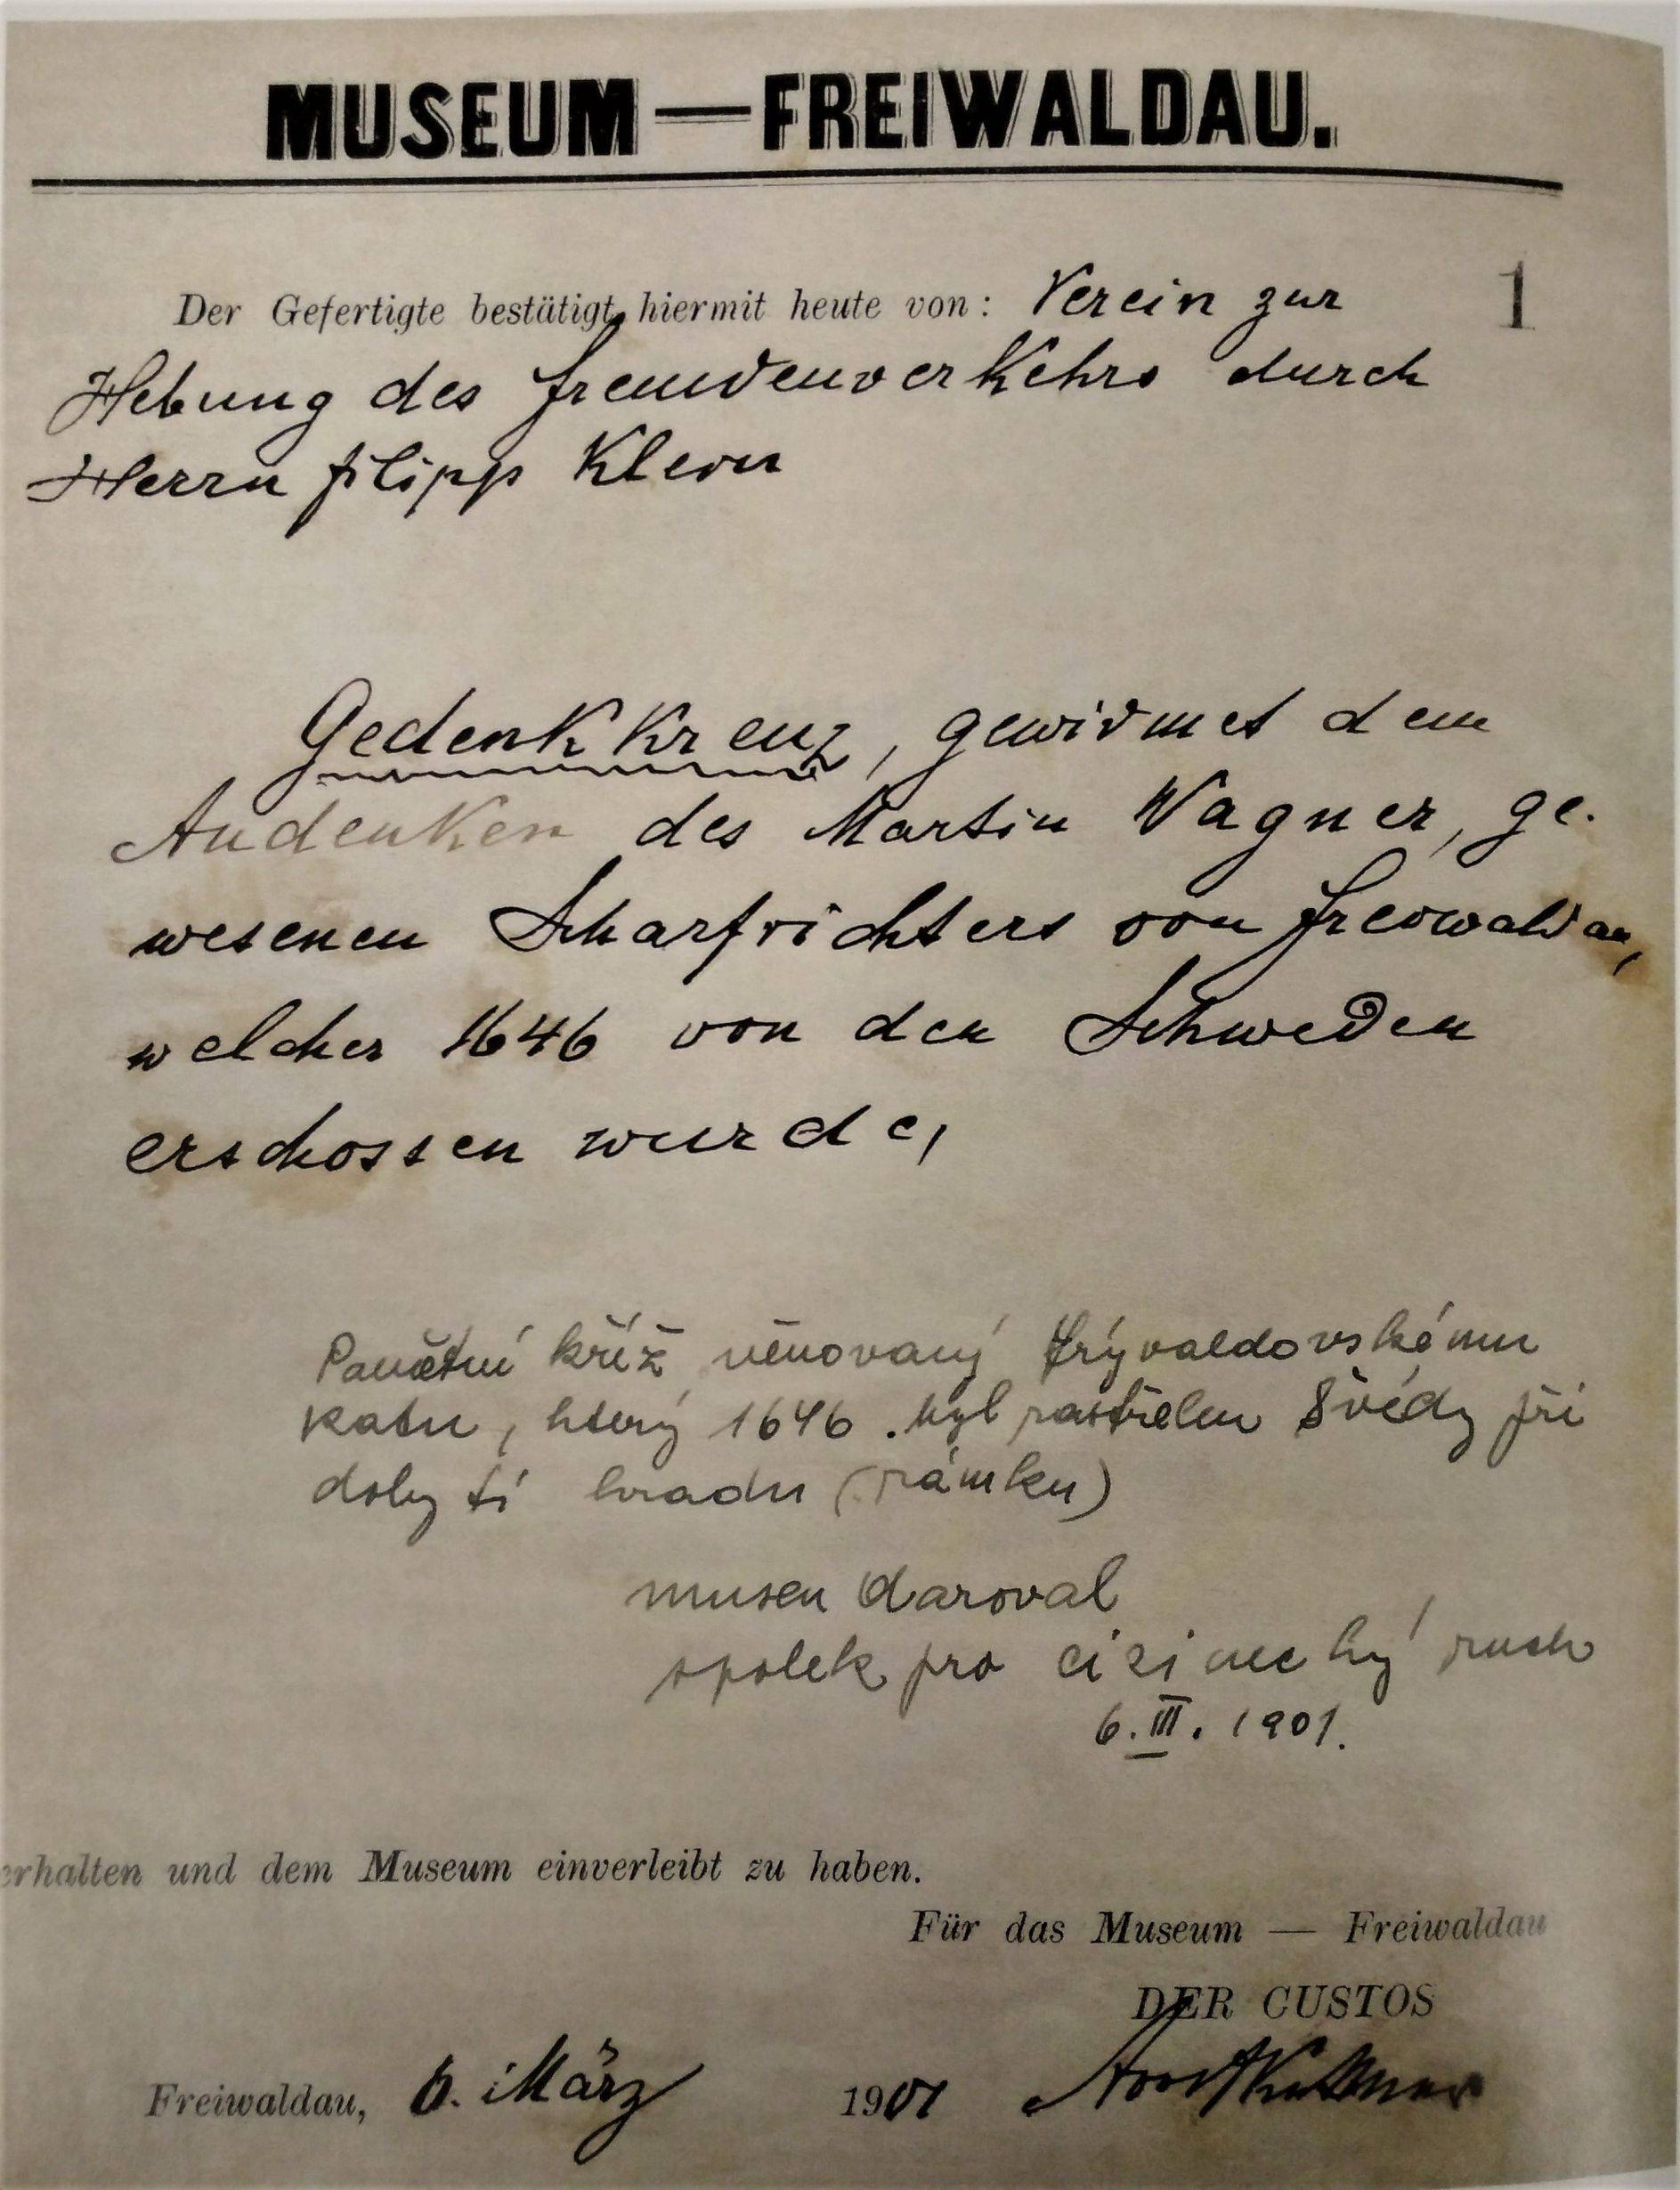 MUSEUM — FREIWALDAU.
1
Der Gefertigte bestätigt hiermit heute von: Verein zur
Hebung des Fremdenverkehrs durch
Herrn Filipp Klein
Gedenkkreuz, gewidmet dem
Andenken des Martin Wagner, ge.
wesenen Scharfrichters von Freiwaldau,
welcher 1646 von den Schweden
erschossen wurde,
Památní kříž věnovaný frývaldovskému
katu, který 1646 byl zastřelen Švédy při
dobytí hradu (zámku)
museu daroval
spolek pro cizinecký ruch
6. III. 1901.
erhalten und dem Museum einverleibt zu haben.
Für das Museum — Freiwaldau
DER CUSTOS
Freiwaldau, 6. März 1901